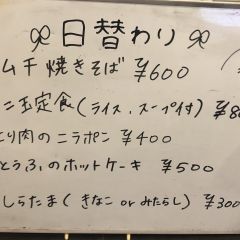 日替わり
ムチ焼きそば ¥600
ニ玉定食(ライス、スープ付) ¥8
り肉のニラポン ¥400
とうふのホットケーキ ¥500
しらたま(きなこ or みたらし) ¥300